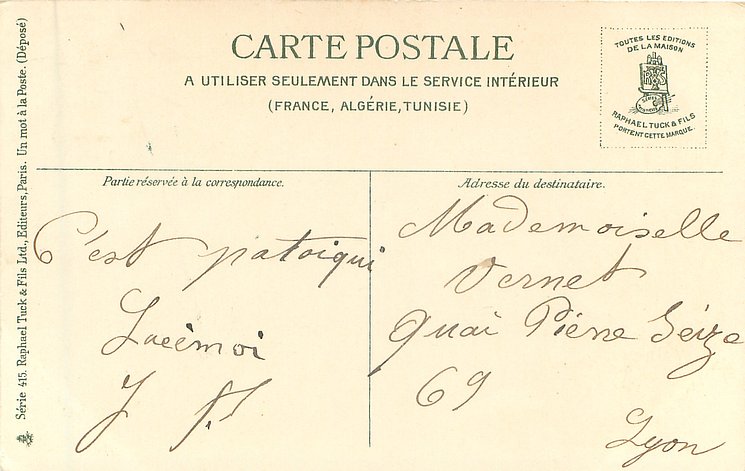 CARTE POSTALE
A UTILISER SEULEMENT DANS LE SERVICE INTÉRIEUR
(FRANCE, ALGÉRIE, TUNISIE)
TOUTES LES EDITIONS
DE LA MAISON
RAPHAEL TUCK & FILS
PORTENT CETTE MARQUE.
Série 415. Raphael Tuck & Fils Ltd., Editeurs, Paris. Un mot à la Poste. (Déposé)
Partie réservée à la correspondance.
C'est patoiqui
Lacémoi
J
Adresse du destinataire.
Mademoiselle
Vernet
Quai Pierre Seize
69
Lyon